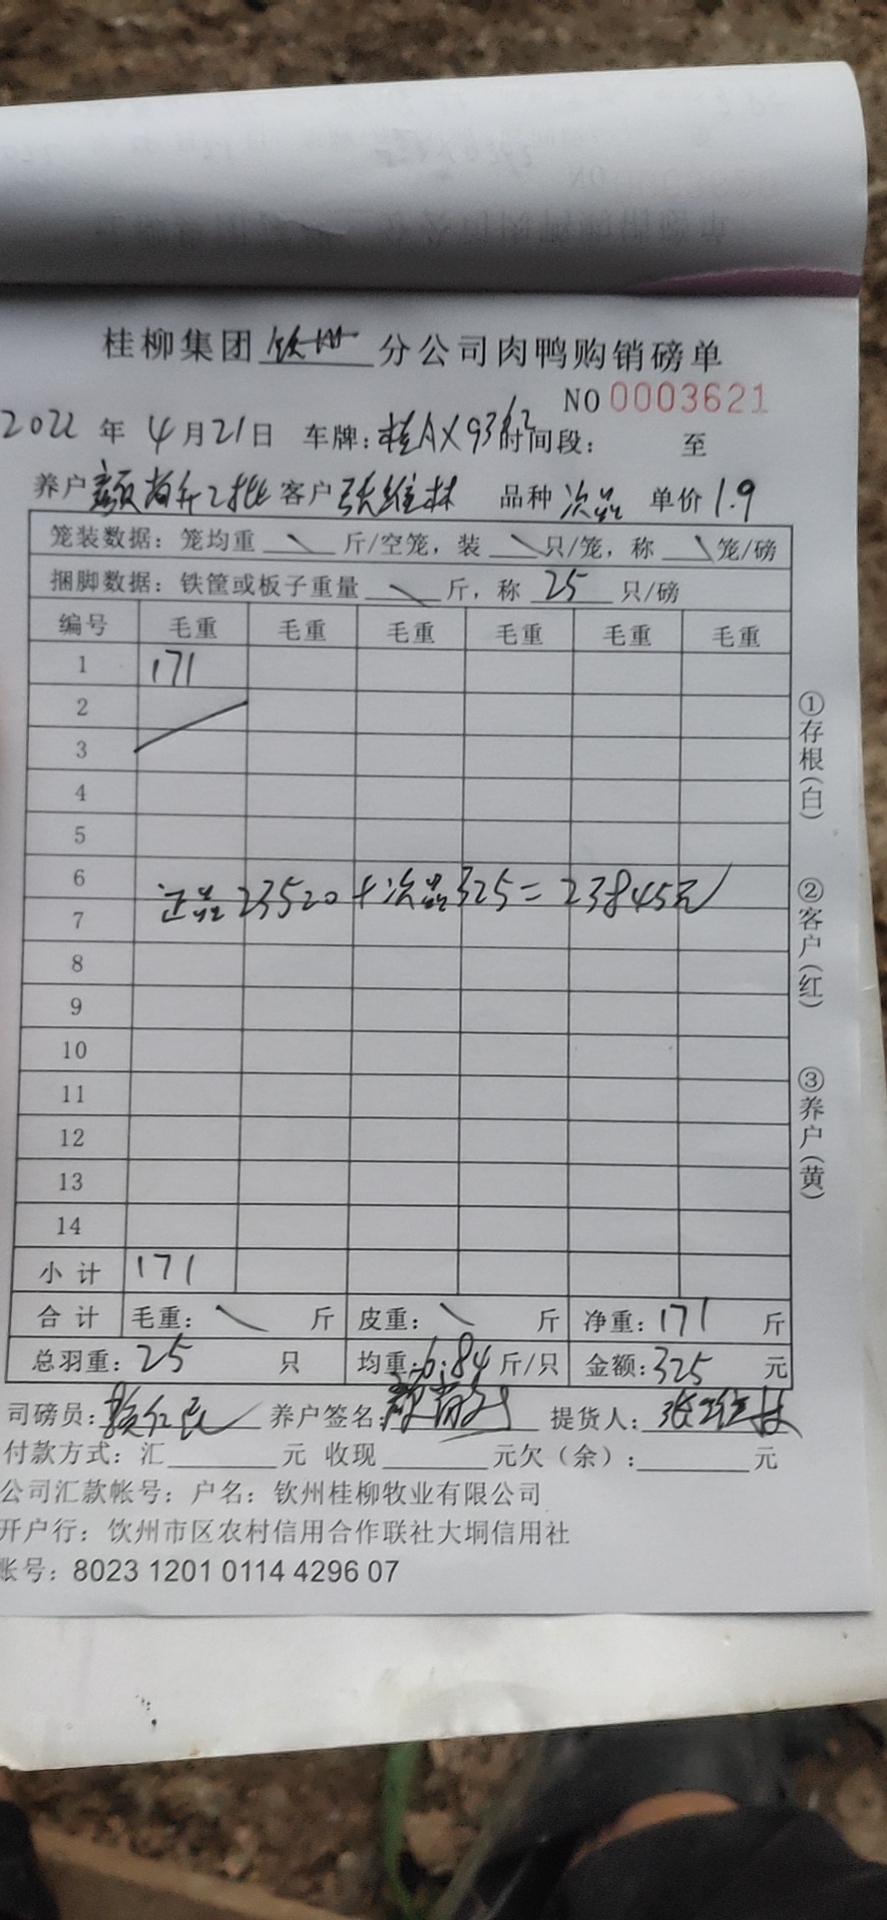 桂柳集团 钦州 分公司肉鸭购销磅单
NO 0003621
2022 年 4 月 21 日 车牌：桂AX93 时间段： 至
养户 颜 2批 客户 张维林 品种 次品 单价 1.9
笼装数据：笼均重 \ 斤/空笼，装 \ 只/笼，称 \ 笼/磅
捆脚数据：铁筐或板子重量 \ 斤，称 25 只/磅
编号 毛重 毛重 毛重 毛重 毛重 毛重
1 171
2
3
4
5
6
正品23520+次品325=23845元
7
8
9
10
11
12
13
14
小计 171
合计 毛重：\ 斤 皮重：\ 斤 净重：171 斤
总羽重：25 只 均重：6.84 斤/只 金额：325 元
司磅员： 养户签名：颜 提货人：张维林
付款方式：汇 元 收现 元欠（余）： 元
公司汇款帐号：户名：钦州桂柳牧业有限公司
开户行：钦州市区农村信用合作联社大垌信用社
账号：8023 1201 0114 4296 07
①存根（白）
②客户（红）
③养户（黄）